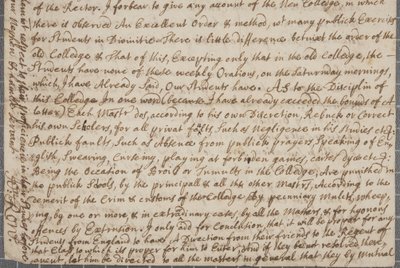 of the Rector. I forbear to give any account of the New Colledge, in which
there is observed An Excellent Order & method, wt many publick Exercises
for Students in Divinitie. There is little difference betwixt the order of the
old Colledge & That of this, Excepting only that in the old Colledge, the
Students have none of these weekly Orations, on the Saturnday mornings,
which I have Already said, Our Students have. As to the Disciplin of
this Colledge In one word (because I have already exceeded the bounds of A
letter) Each Mastr dos, according to his own Discretion, Rebuck or Correct
his own Scholers, for all privat faults Such as Negligence in his studies etc:
Publick faults, Such as Absence from publick prayers, Speaking of En-
glish, Swearing, Cursing, playing at forbiden games, cards dyce etc:
Being the Occasion of Broill or Tumults in the Colledge, Are punished in
the publick Scools, by the principall & all the other Mastrs, According to the
demerit of the Crim & customs of the Colledge By pecuniary mulcts, whipp-
ing, by one or more, & in extraordinary cases, by all the Mastrs, & for hyonous
offences by Extrusion. I only add for Conclusion, that it will be proper for any
Student from England to have A Direction from their friends to the Regent of
that Class to which its proper for him to Enter, And if they be not resolved there
anent, let him be directed to all the masters in general that they by mutual